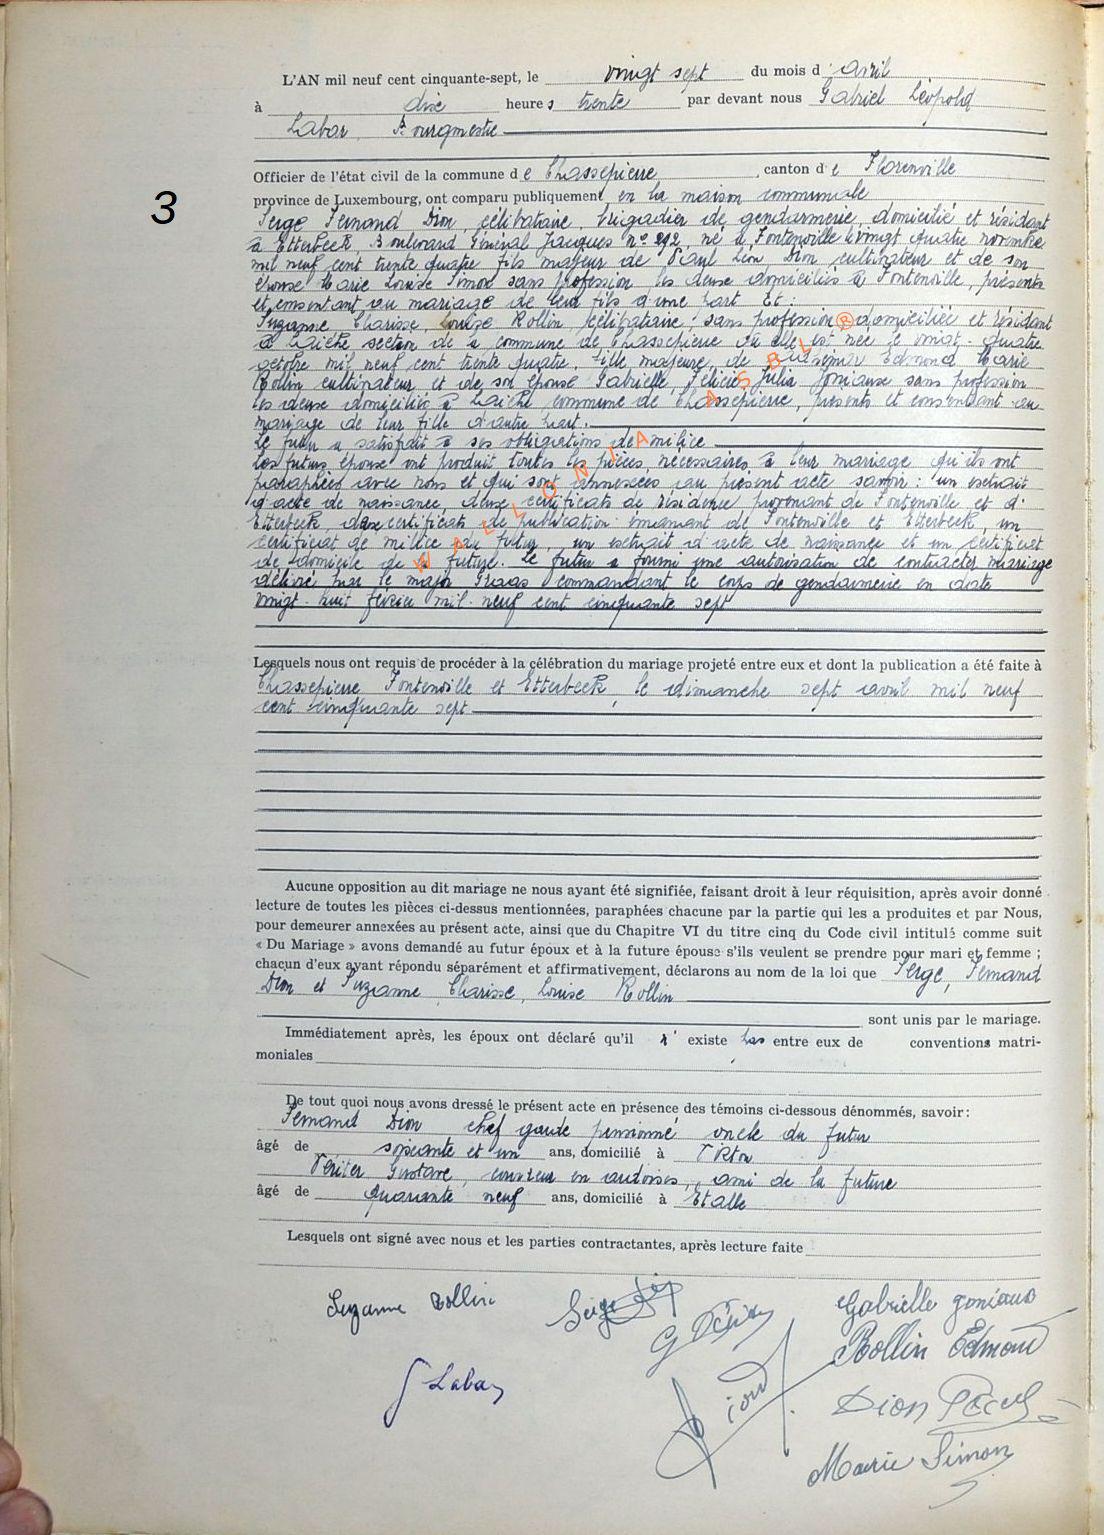 L'AN mil neuf cent cinquante-sept, le vingt sept du mois d'avril
à dix heures trente par devant nous Gabriel Léopold
Labar, Bourgmestre
Officier de l'état civil de la commune de Chassepierre, canton de Florenville
province de Luxembourg, ont comparu publiquement en la maison communale
3
Serge Fernand Dion, célibataire, brigadier de gendarmerie, domicilié et résidant
à Etterbeek Boulevard Général Jacques n° 292, né à Fontenoille le vingt quatre novembre
mil neuf cent trente quatre fils majeur de Paul Léon Dion cultivateur et de son
épouse Marie Louise Simon sans profession les deux domiciliés à Fontenoille, présents
et consentant au mariage de leur fils d'une part Et :
Suzanne Clarisse, Louise Rollin, célibataire, sans profession domiciliée et résidant
à Laiche section de la commune de Chassepierre où elle est née le vingt-quatre
octobre mil neuf cent trente quatre, fille majeure, de Edmond Marie
Rollin cultivateur et de son épouse Gabrielle, Félicie, Julia Goniaux sans profession
les deux domiciliés à Laiche, commune de Chassepierre, présents et consentant au
mariage de leur fille d'autre part.
Le futur a satisfait à ses obligations de milice
Les futurs époux ont produit toutes les pièces, nécessaires à leur mariage qu'ils ont
paraphées avec nous et qui sont annexées au présent acte savoir : un extrait
d'acte de naissance, deux certificats de résidence provenant de Fontenoille et d'
Etterbeek, deux certificats de publication émanant de Fontenoille et Etterbeek, un
certificat de milice du futur, un extrait d'acte de naissance et un certificat
de domicile de la future. Le futur a fourni une autorisation de contracter mariage
délivré par le major Graas commandant le corps de gendarmerie en date
vingt-huit février mil-neuf cent cinquante sept
WALLONIA ASBL ®
Lesquels nous ont requis de procéder à la célébration du mariage projeté entre eux et dont la publication a été faite à
Chassepierre Fontenoille et Etterbeek, le dimanche sept avril mil neuf
cent cinquante sept
Aucune opposition au dit mariage ne nous ayant été signifiée, faisant droit à leur réquisition, après avoir donné
lecture de toutes les pièces ci-dessus mentionnées, paraphées chacune par la partie qui les a produites et par Nous,
pour demeurer annexées au présent acte, ainsi que du Chapitre VI du titre cinq du Code civil intitulé comme suit
« Du Mariage » avons demandé au futur époux et à la future épouse s'ils veulent se prendre pour mari et femme ;
chacun d'eux ayant répondu séparément et affirmativement, déclarons au nom de la loi que Serge, Fernand
Dion et Suzanne, Clarisse, Louise Rollin
sont unis par le mariage.
Immédiatement après, les époux ont déclaré qu'il n' existe pas entre eux de conventions matri-
moniales
De tout quoi nous avons dressé le présent acte en présence des témoins ci-dessous dénommés, savoir :
Fernand Dion chef garde pensionné oncle du futur
âgé de soixante et un ans, domicilié à Virton
Gustave, couvreur en ardoises, ami de la future
âgé de quarante neuf ans, domicilié à Etalle
Lesquels ont signé avec nous et les parties contractantes, après lecture faite
Suzanne Rollin
Serge Dion
Gabrielle Goniaux
Rollin Edmond
G Labar
Dion
Dion Paul
Marie Simon